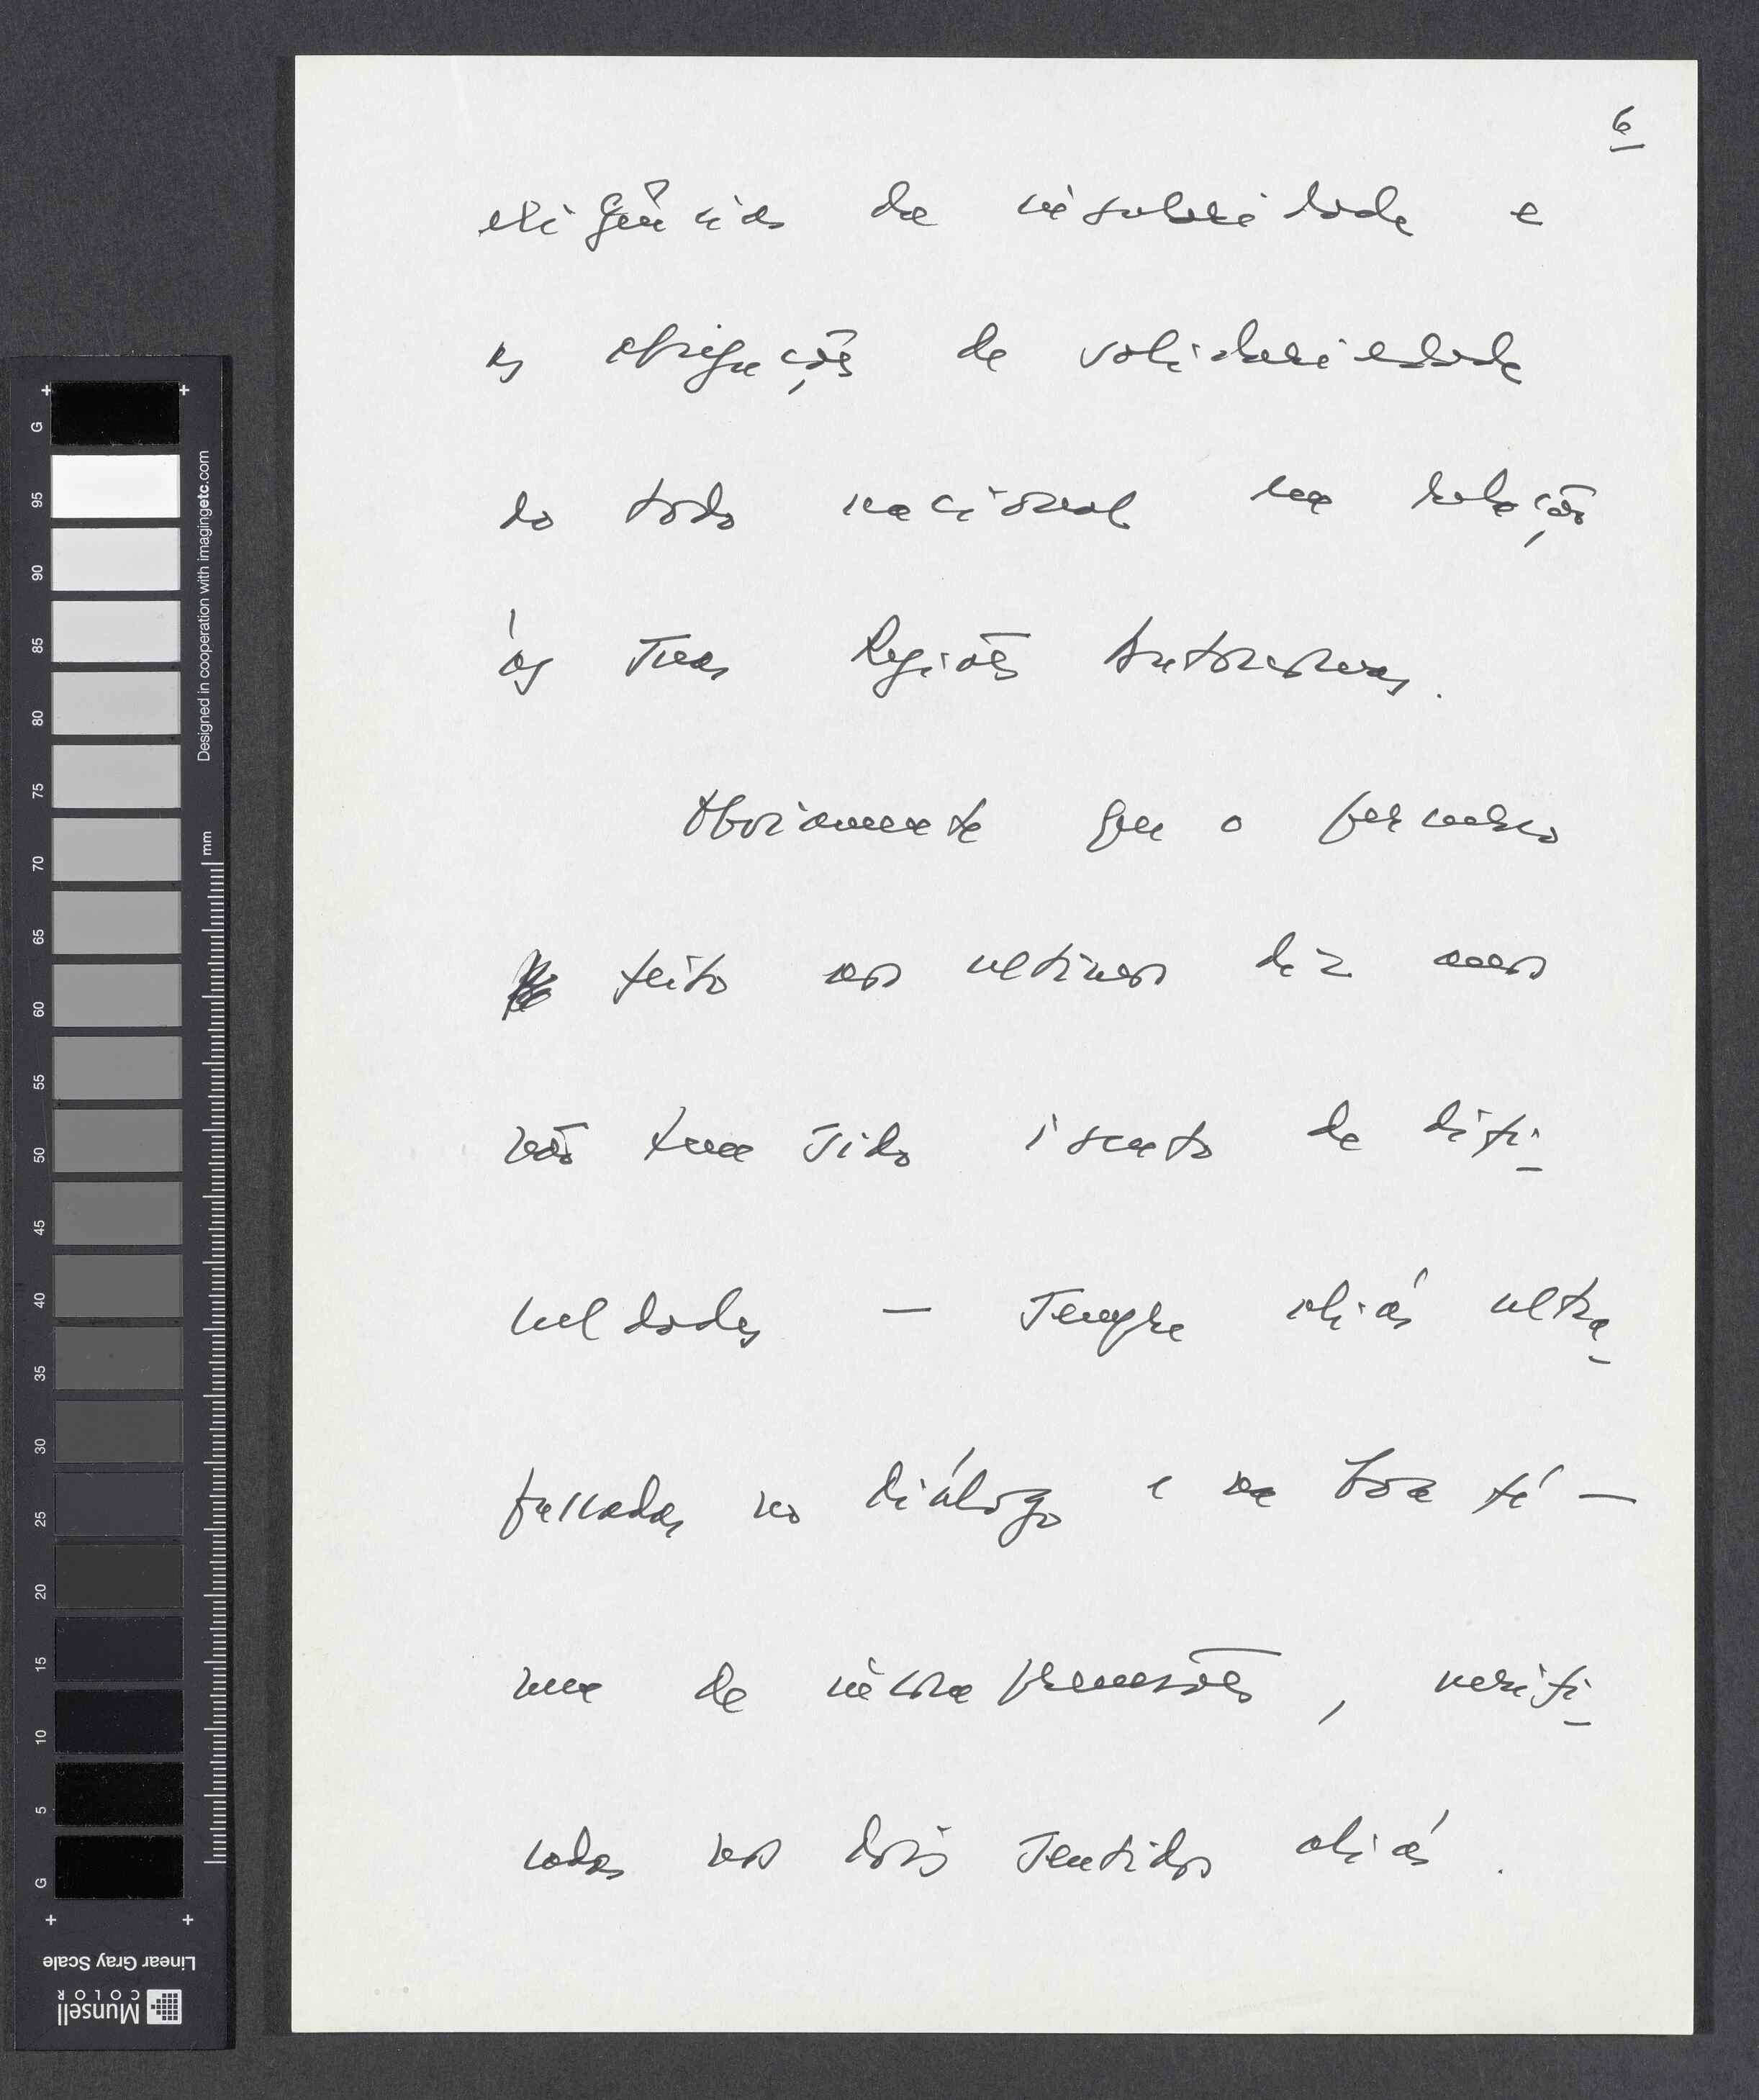 6
exigências da insularidade e
as obrigações de solidariedade
do todo nacional na relação
às suas Regiões Autónomas.
Obviamente que o percurso
feito nos ultimos dez anos
não tem sido isento de difi-
culdades — sempre aliás ultra-
passadas no diálogo e na boa fé —
nem de incompreensões, verifi-
cadas nos dois sentidos aliás.
+ +
G
95
90
85
80
75
70
65
60
55
50
45
40
35
30
25
20
15
10
5
G
+ +
Designed in cooperation with imagingetc.com
mm
Linear Gray Scale
Munsell
COLOR